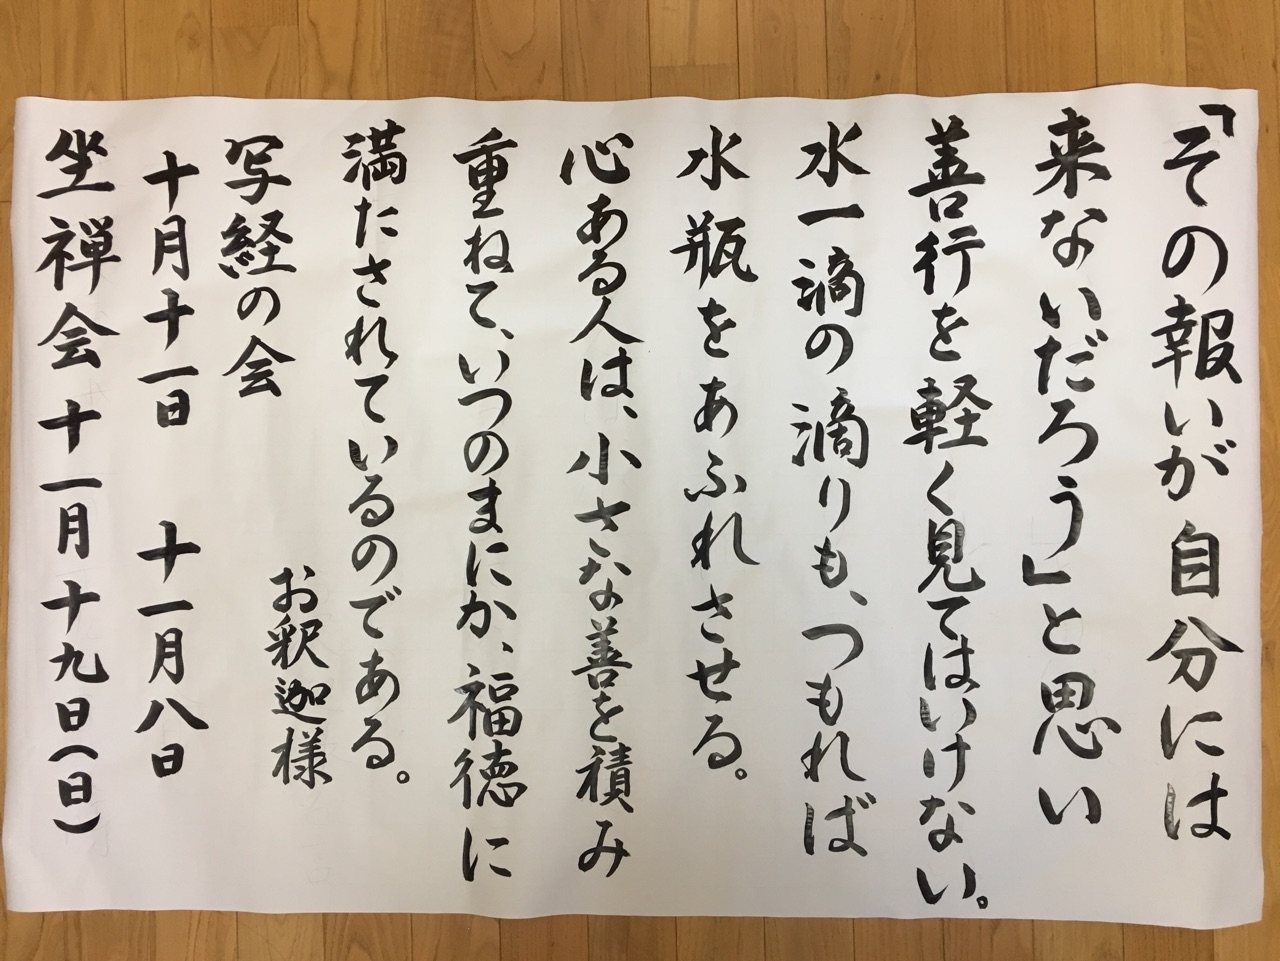 「その報いが自分には
来ないだろう」と思い
善行を軽く見てはいけない。
水一滴の滴りも、つもれば
水瓶をあふれさせる。
心ある人は、小さな善を積み
重ねて、いつのまにか、福徳に
満たされているのである。
お釈迦様
写経の会
十月十一日 十一月八日
坐禅会 十一月十九日(日)